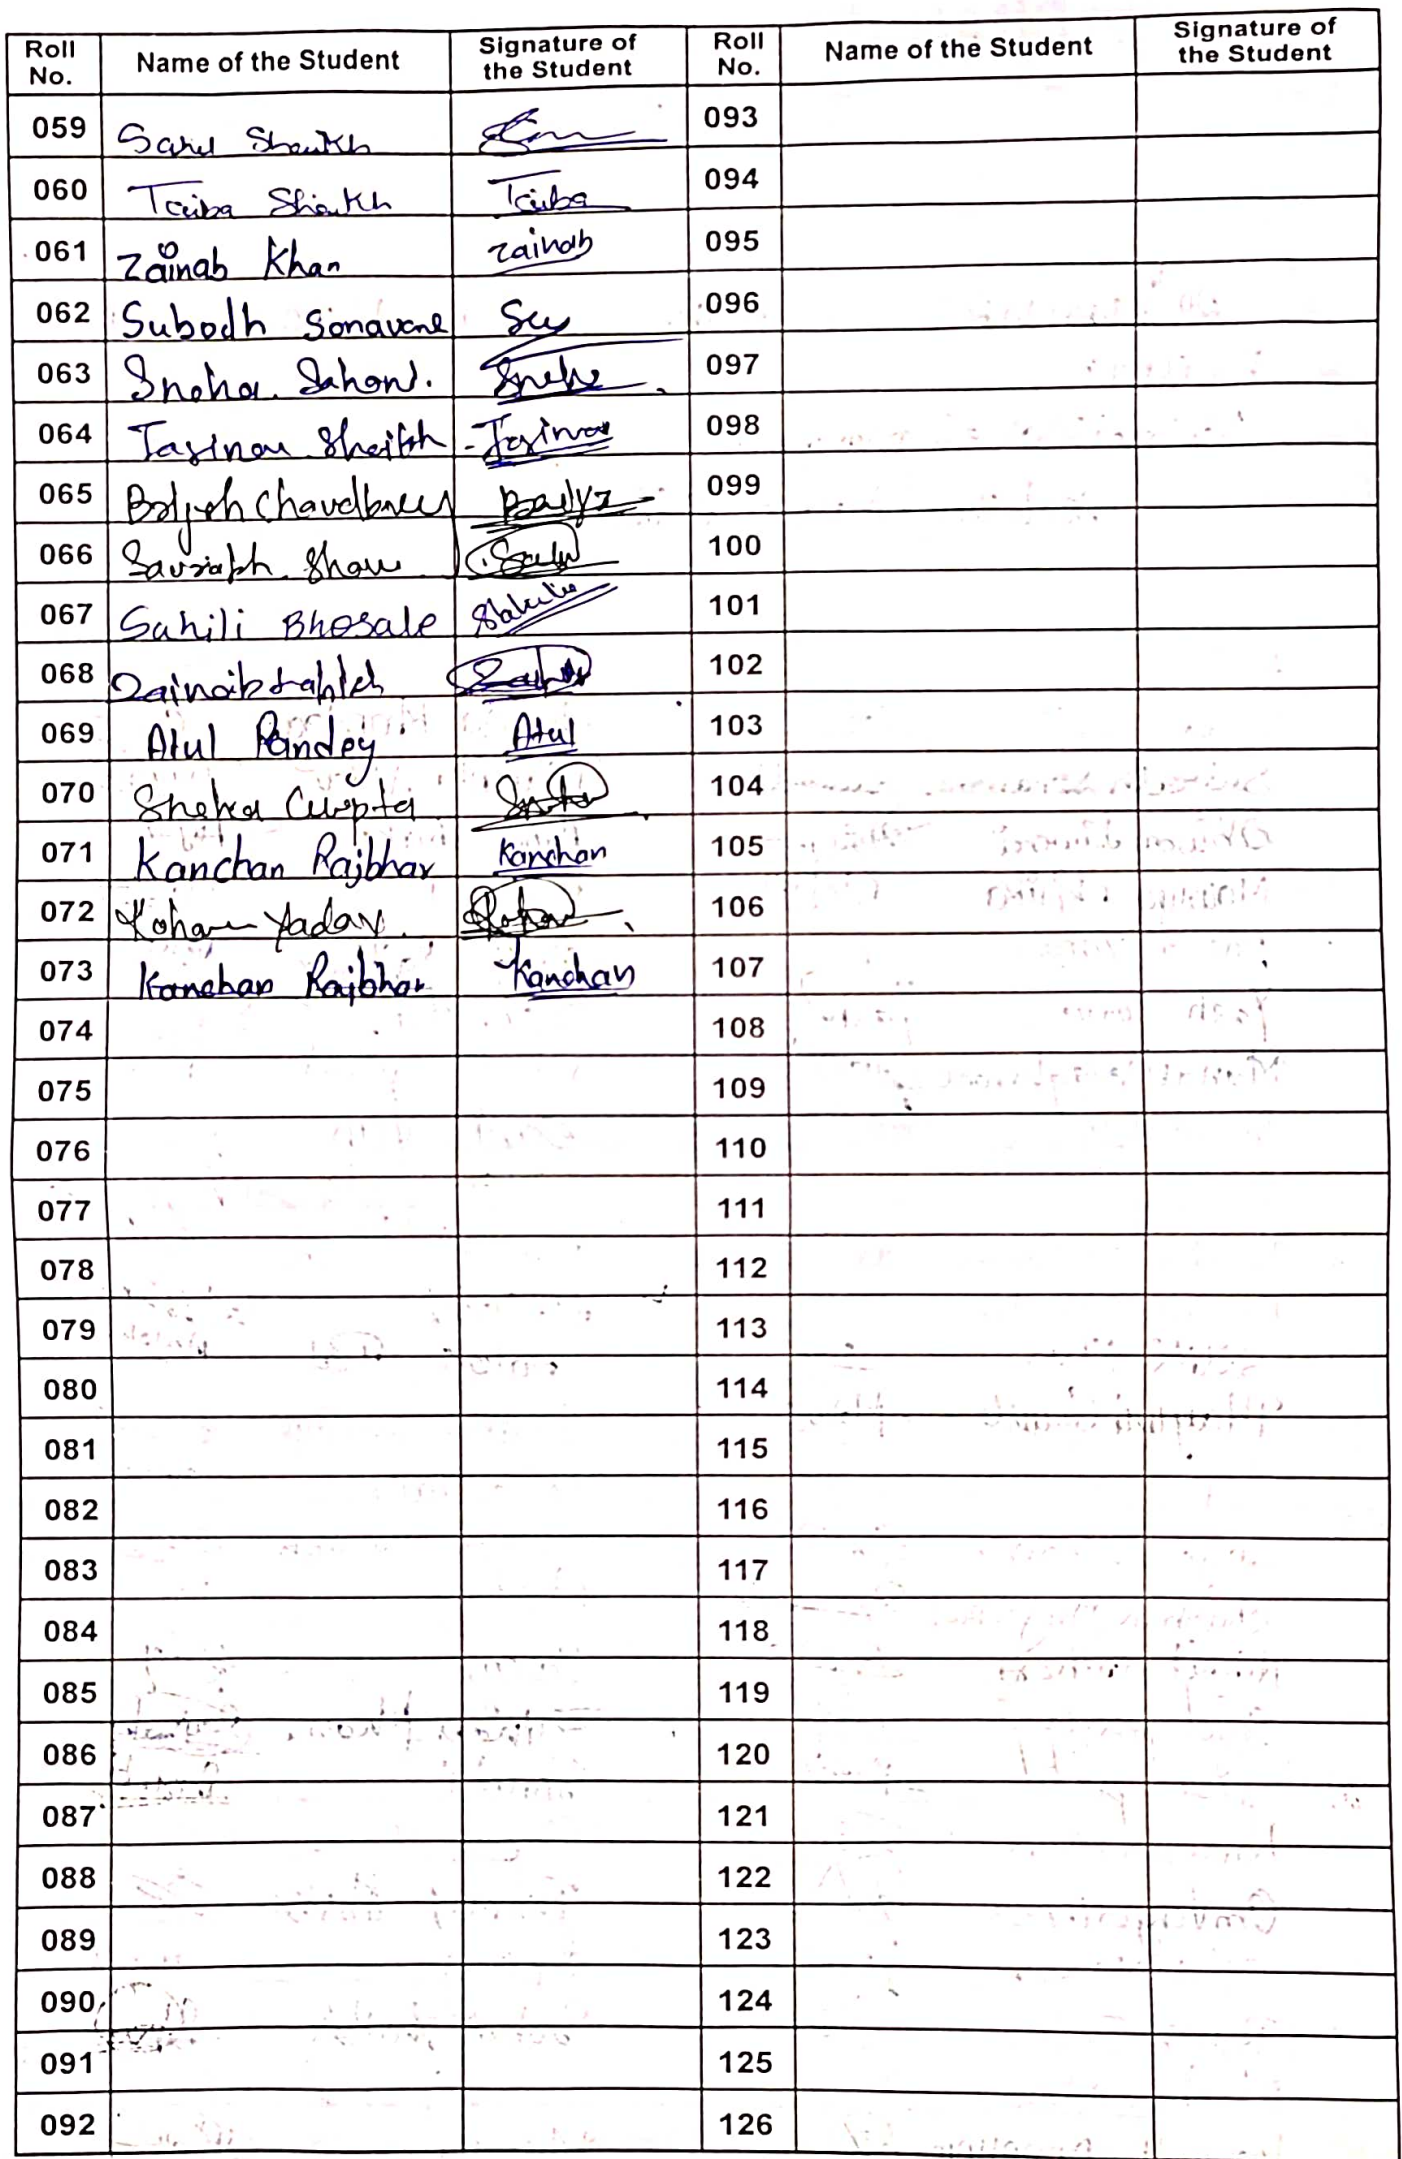 Roll No. Name of the Student Signature of the Student Roll No. Name of the Student Signature of the Student
059 Shaikh 093
060 Taiba Shaikh Taiba 094
061 Zainab Khan Zainab 095
062 Subodh Sonavane 096
063 Sneha Sahani. Sneha 097
064 Shaikh 098
065 099
066 Saurabh Shaw 100
067 Bhosale 101
068 102
069 Atul Pandey Atul 103
070 Sneha Gupta 104
071 Kanchan Rajbhar Kanchan 105
072 Rohan Yadav. Rohan 106
073 Kanchan Rajbhar Kanchan 107
074 108
075 109
076 110
077 111
078 112
079 113
080 114
081 115
082 116
083 117
084 118
085 119
086 120
087 121
088 122
089 123
090 124
091 125
092 126